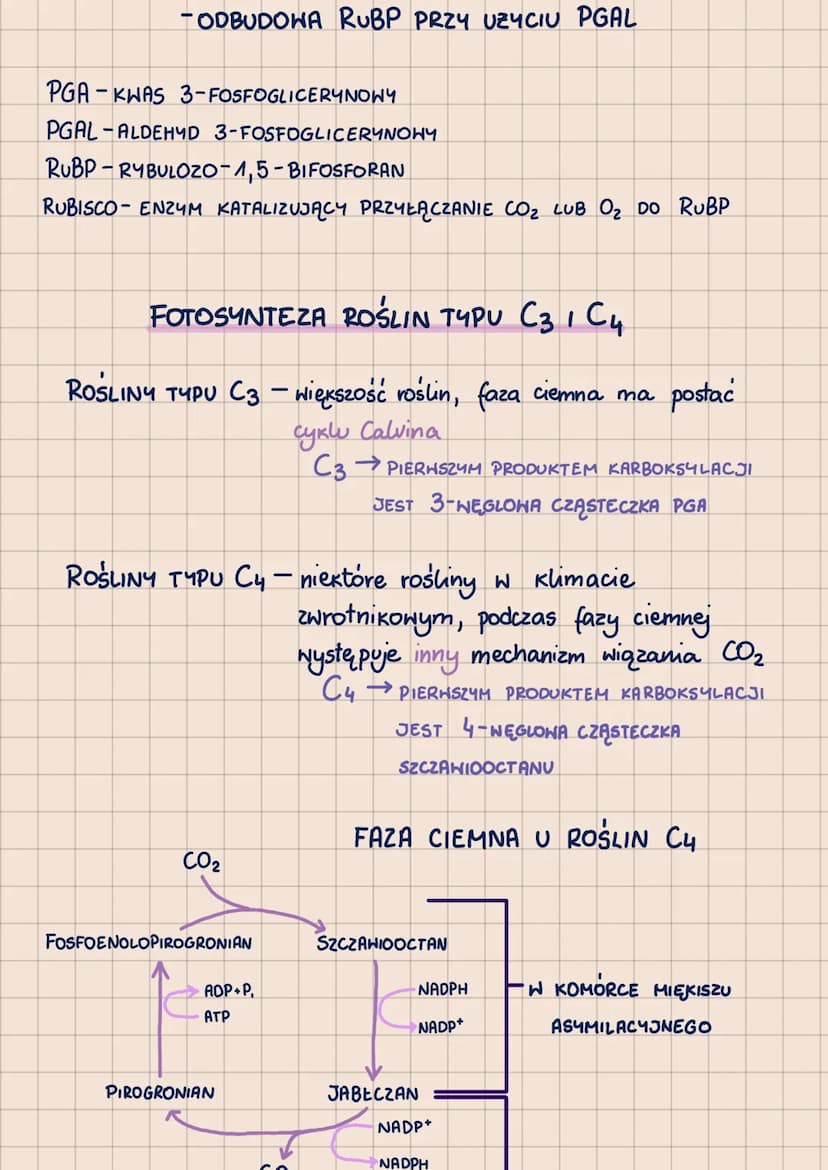 -ODBUDOWA RuBP PRZY UŻYCIU PGAL
PGA - KWAS 3-FOSFOGLICERYNOWY
PGAL - ALDEHYD 3-FOSFOGLICERYNOWY
RuBP - RYBULOZO-1,5-BIFOSFORAN
RUBISCO - ENZYM KATALIZUJĄCY PRZYŁĄCZANIE CO₂ LUB O₂ DO RuBP
FOTOSYNTEZA ROŚLIN TYPU C₃ I C₄
ROŚLINY TYPU C₃ – większość roślin, faza ciemna ma postać
cyklu Calvina
C₃ → PIERWSZYM PRODUKTEM KARBOKSYLACJI
JEST 3-WĘGLOWA CZĄSTECZKA PGA
ROŚLINY TYPU C₄ – niektóre rośliny w klimacie
zwrotnikowym, podczas fazy ciemnej
występuje inny mechanizm wiązania CO₂
C₄ → PIERWSZYM PRODUKTEM KARBOKSYLACJI
JEST 4-WĘGLOWA CZĄSTECZKA
SZCZAWIOOCTANU
FAZA CIEMNA U ROŚLIN C₄
CO₂
FOSFOENOLOPIROGRONIAN
SZCZAWIOOCTAN
ADP+Pᵢ
ATP
NADPH
NADP⁺
W KOMÓRCE MIĘKISZU
ASYMILACYJNEGO
PIROGRONIAN
JABŁCZAN
NADP⁺
NADPH